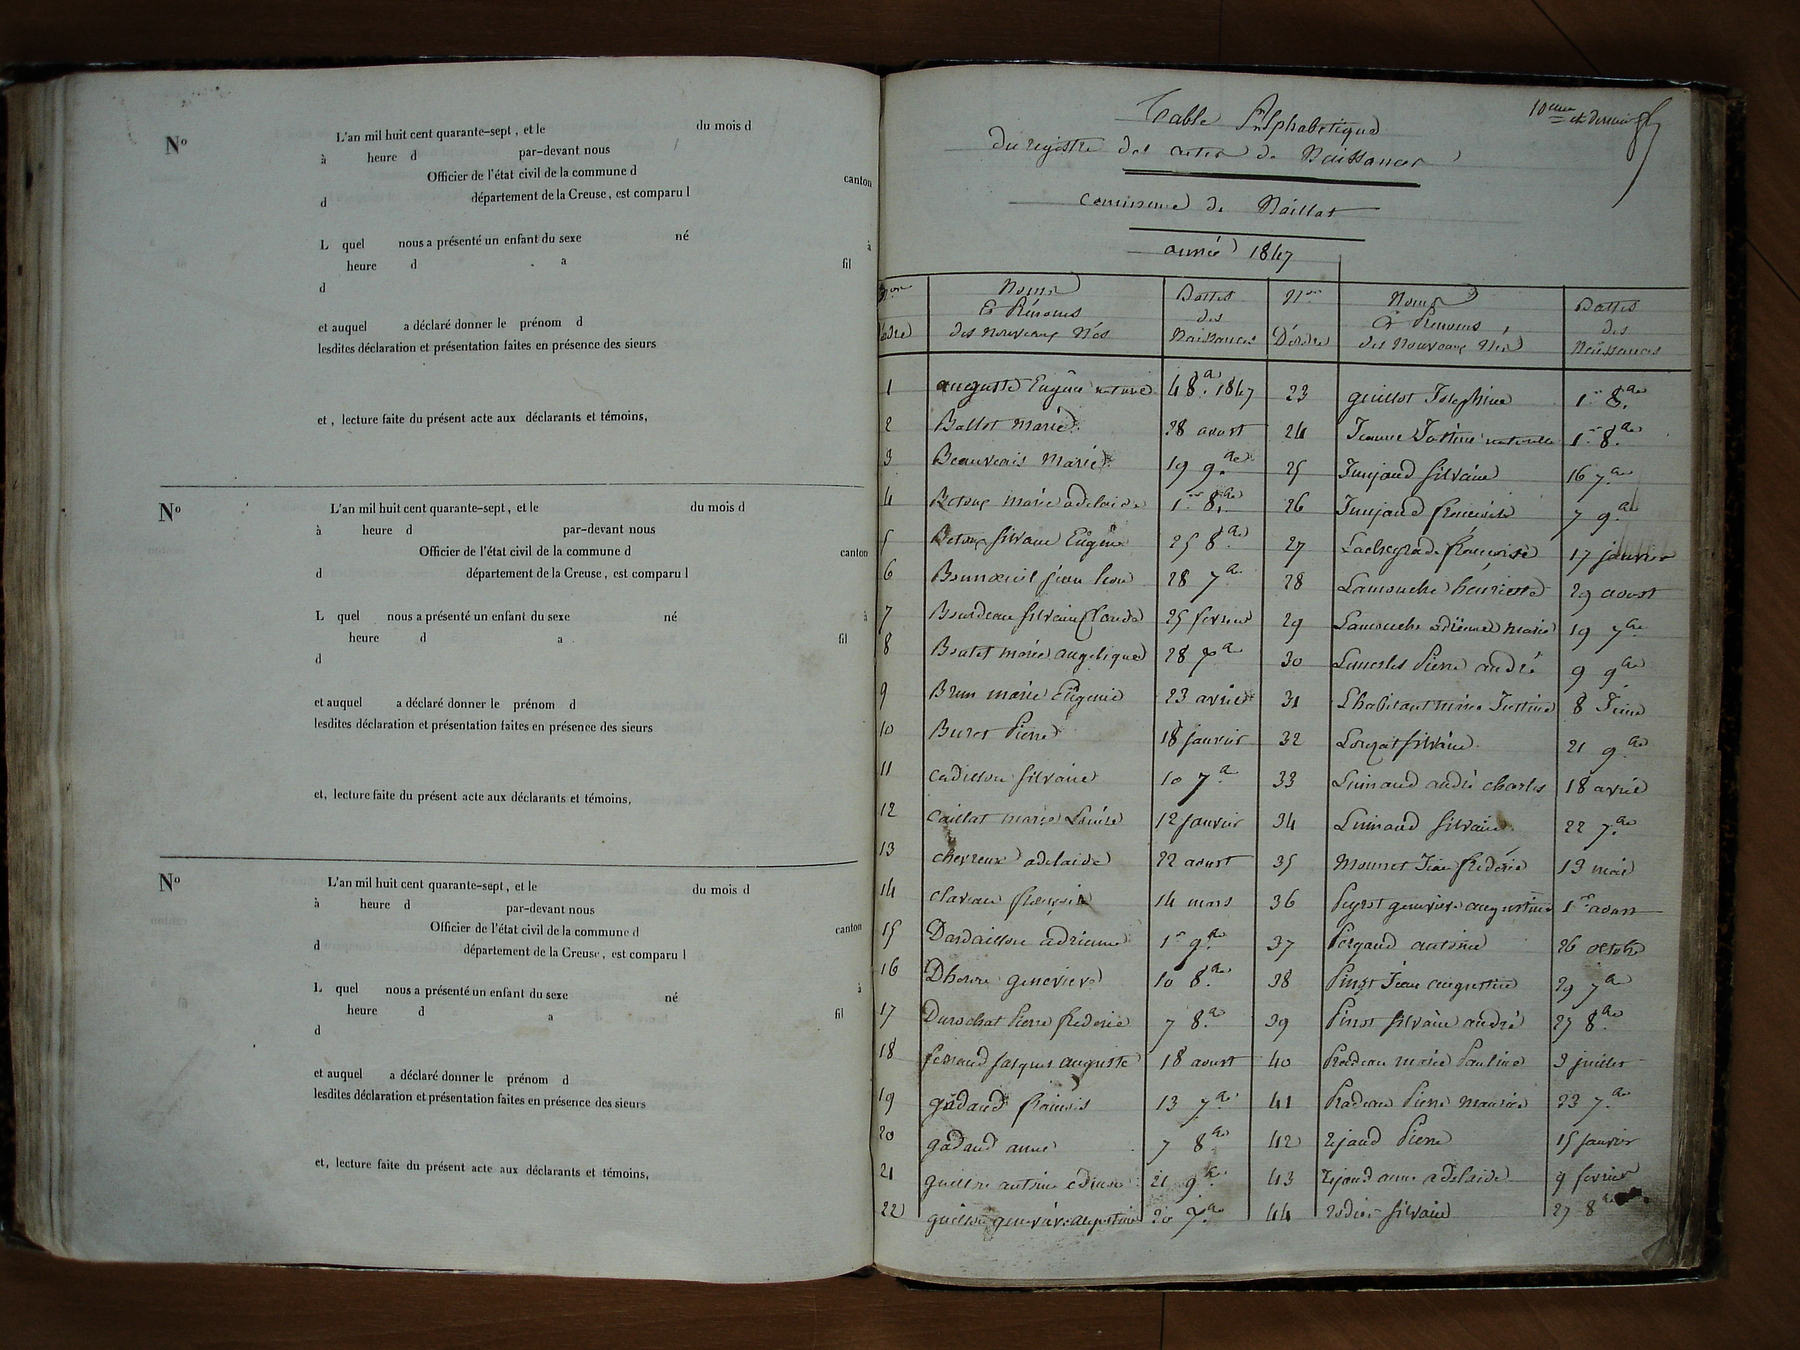 Nº
L'an mil huit cent quarante-sept, et le du mois d
à heure d par-devant nous
Officier de l'état civil de la commune d canton
d département de la Creuse, est comparu l
L quel nous a présenté un enfant du sexe né à
heure d a fil
d
et auquel a déclaré donner le prénom d
lesdites déclaration et présentation faites en présence des sieurs
et, lecture faite du présent acte aux déclarants et témoins,
Nº
L'an mil huit cent quarante-sept, et le du mois d
à heure d par-devant nous
Officier de l'état civil de la commune d canton
d département de la Creuse, est comparu l
L quel nous a présenté un enfant du sexe né à
heure d a fil
d
et auquel a déclaré donner le prénom d
lesdites déclaration et présentation faites en présence des sieurs
et, lecture faite du présent acte aux déclarants et témoins,
Nº
L'an mil huit cent quarante-sept, et le du mois d
à heure d par-devant nous
Officier de l'état civil de la commune d canton
d département de la Creuse, est comparu l
L quel nous a présenté un enfant du sexe né à
heure d a fil
d
et auquel a déclaré donner le prénom d
lesdites déclaration et présentation faites en présence des sieurs
et, lecture faite du présent acte aux déclarants et témoins,
10eme et dernier
Table Alphabetique
du registre des actes de Naissances
commune de Naillat
année 1847
Noms Dattes Nos Noms Dattes
Et Prénoms des & Prenoms des
des nouveaux Nés Naissances D'ordre des Nouveaux Nés Naissances
1 auguste Eugène naturel 4 8.re 1847 23 guillot Joséphine 1er 8.re
2 Ballet Marie 28 aoust 24 Jeanne Justine naturelle 1er 8.re
3 Beauvais Marie 19 9.re 25 Junjaud Silvaine 16 7.re
4 Betoux marie adelaide 1er 8.re 26 Junjaud françois 7 9.re
5 Betoux Silvain Eugène 25 8.re 27 françoise 17 janvier
6 Bonnoeuil jean leon 28 7.re 28 Lamouche henriette 29 aoust
7 Bourdeau Silvain Claude 25 fevrier 29 Lamouche adrienne marie 19 7.re
8 Boutet marie angelique 28 7.re 30 Pierre andré 9 9.re
9 Brun marie Eugenie 23 avril 31 Lhabitant marie Justine 8 Juin
10 Buret Pierre 18 janvier 32 Silvain 21 9.re
11 cadillon Silvaine 10 7.re 33 andré charles 18 avril
12 Caillat marie Louise 12 janvier 34 Silvain 22 7.re
13 chevreux adelaide 22 aoust 35 Jean frederic 13 mai
14 claveau françois 14 mars 36 Peyrot genevieve augustine 1er aoust
15 Dardaillon adrienne 1er 9.re 37 antoine 26 octobre
16 genevieve 10 8.re 38 Pinot Jean augustin 29 7.re
17 Durochat Pierre frederic 7 8.re 39 Pinot Silvain andré 27 8.re
18 jacques auguste 18 aoust 40 Pradeau marie Pauline 3 juillet
19 gadaud françois 13 7.re 41 Pradeau Pierre Maurice 23 7.re
20 gadaud anne 7 8.re 42 Rejaud Pierre 15 janvier
21 guillon antoine 21 9.re 43 Rejaud anne adelaide 9 fevrier
22 guillon genevieve augustine 20 7.re 44 Rodier Silvain 27 8